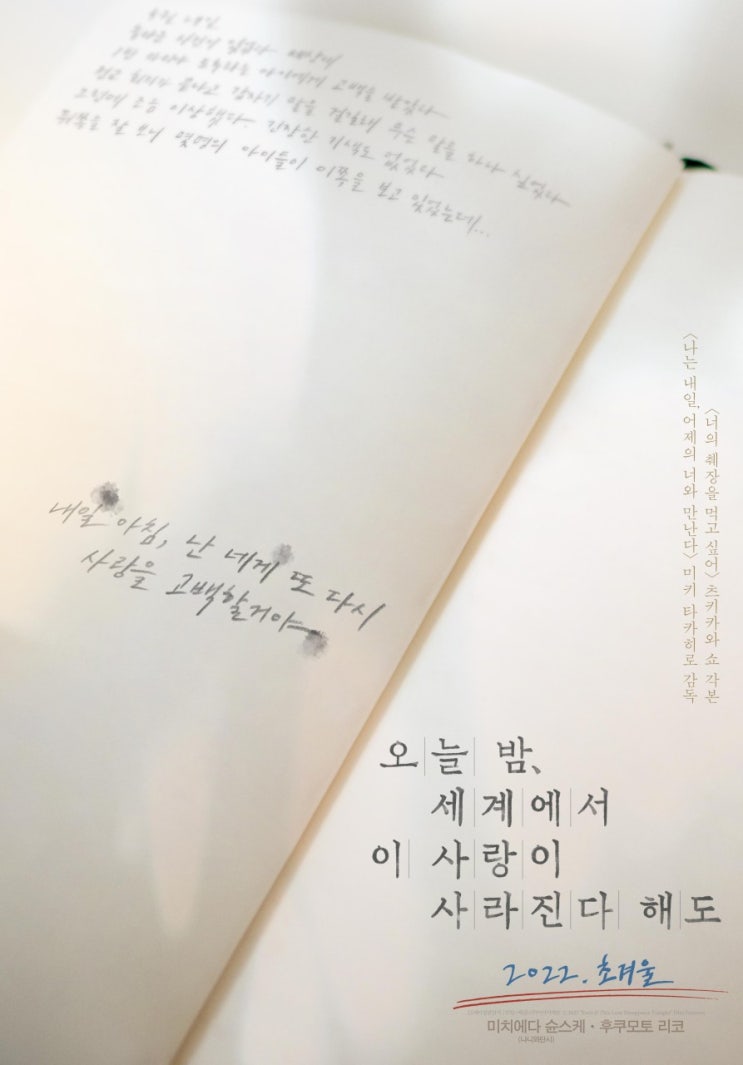 1반 가미야 도루라는 아이에게 고백을 받았다
조금 이상했다. 긴장한 기색도 없었다
뒤쪽을 잘 보니 몇명의 아이들이 이쪽을 보고 있었는데...
내일 아침, 난 네게 또 다시
사랑을 고백할거야
<너의 췌장을 먹고 싶어> 츠키카와 쇼 각본
<나는 내일, 어제의 너와 만난다> 미키 타카히로 감독
오늘 밤,
세계에서
이 사랑이
사라진다 해도
2022. 초겨울
미치에다 슌스케 · 후쿠모토 리코
(나니와단시)